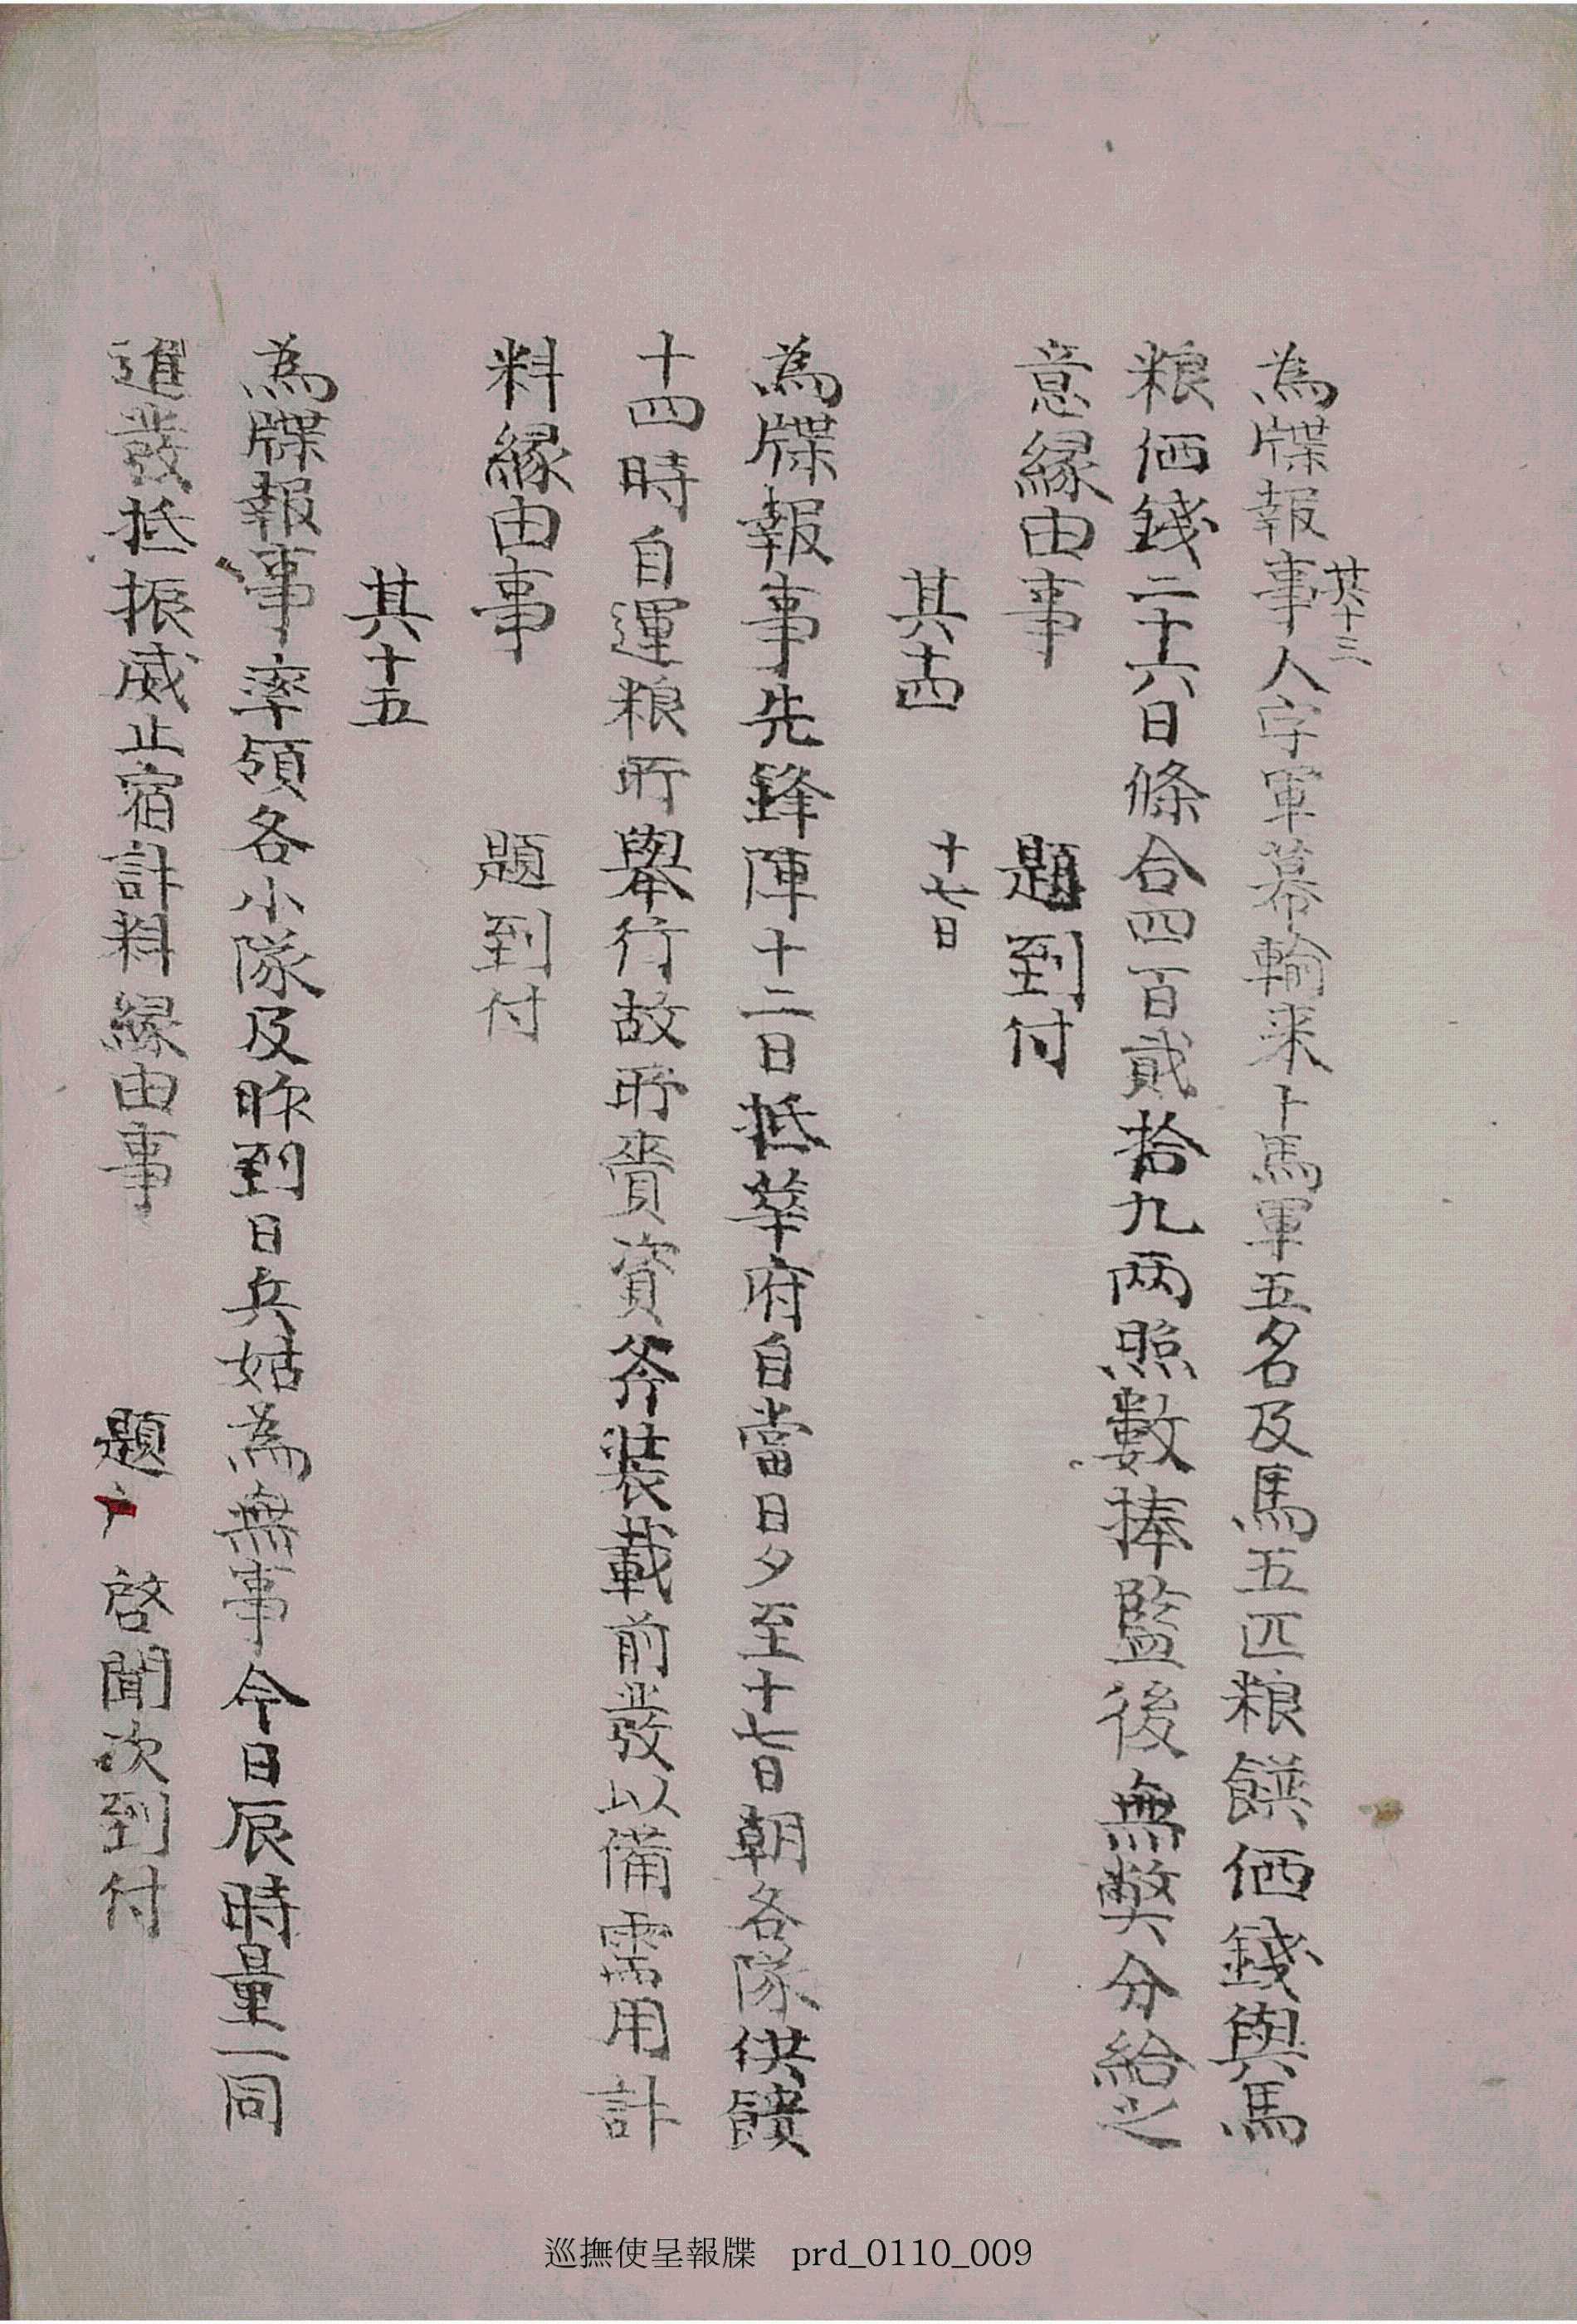 其十三
為牒報事人字軍幕輸來卜馬軍五名及馬五匹粮饌価錢與馬
粮価錢二十六日條合四百貳拾九両照數捧監後無獘分給之
意緣由事 題到付
其十四 十七日
為牒報事先鋒陣十二日抵華府自當日夕至十七日朝各隊供饋
十四時自運粮所擧行故所賫資斧裝載前發以備需用計
料緣由事 題到付
其十五
為牒報事率領各小隊及昨到日兵姑為無事今日辰時量一同
進發抵振威止宿計料緣由事 題 啓聞次到付
巡撫使呈報牒 prd_0110_009